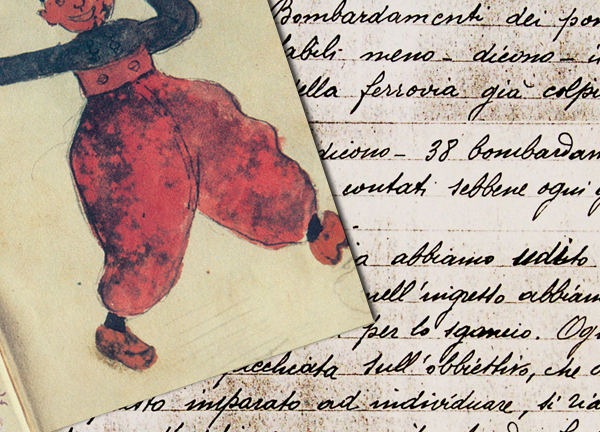 Bombardamenti dei pon
labili meno - dicono - i
ella ferrovia già colpi
dicono - 38 bombardam
contati sebbene ogni g
a abbiamo udito
nell'ingresso abbiam
per lo sgancio. Ogn
cchiata sull'obbiettivo, che a
sto imparato ad individuare, si ria